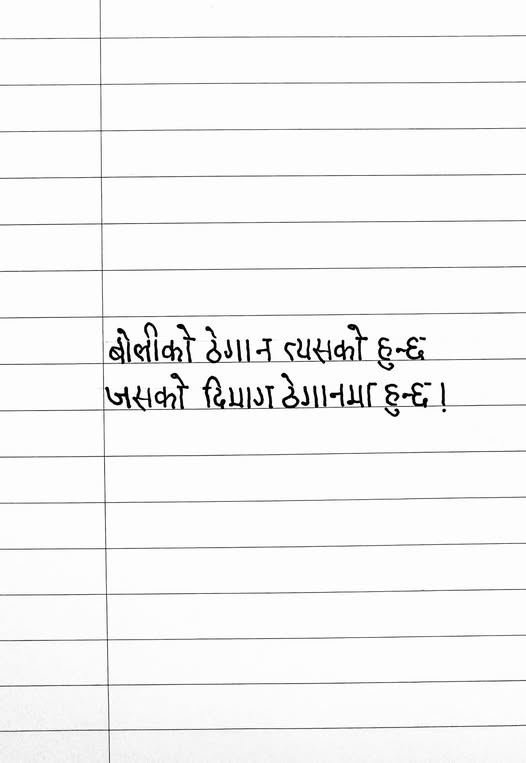 बोलीको ठेगान त्यसको हुन्छ
जसको दिमाग ठेगानमा हुन्छ!